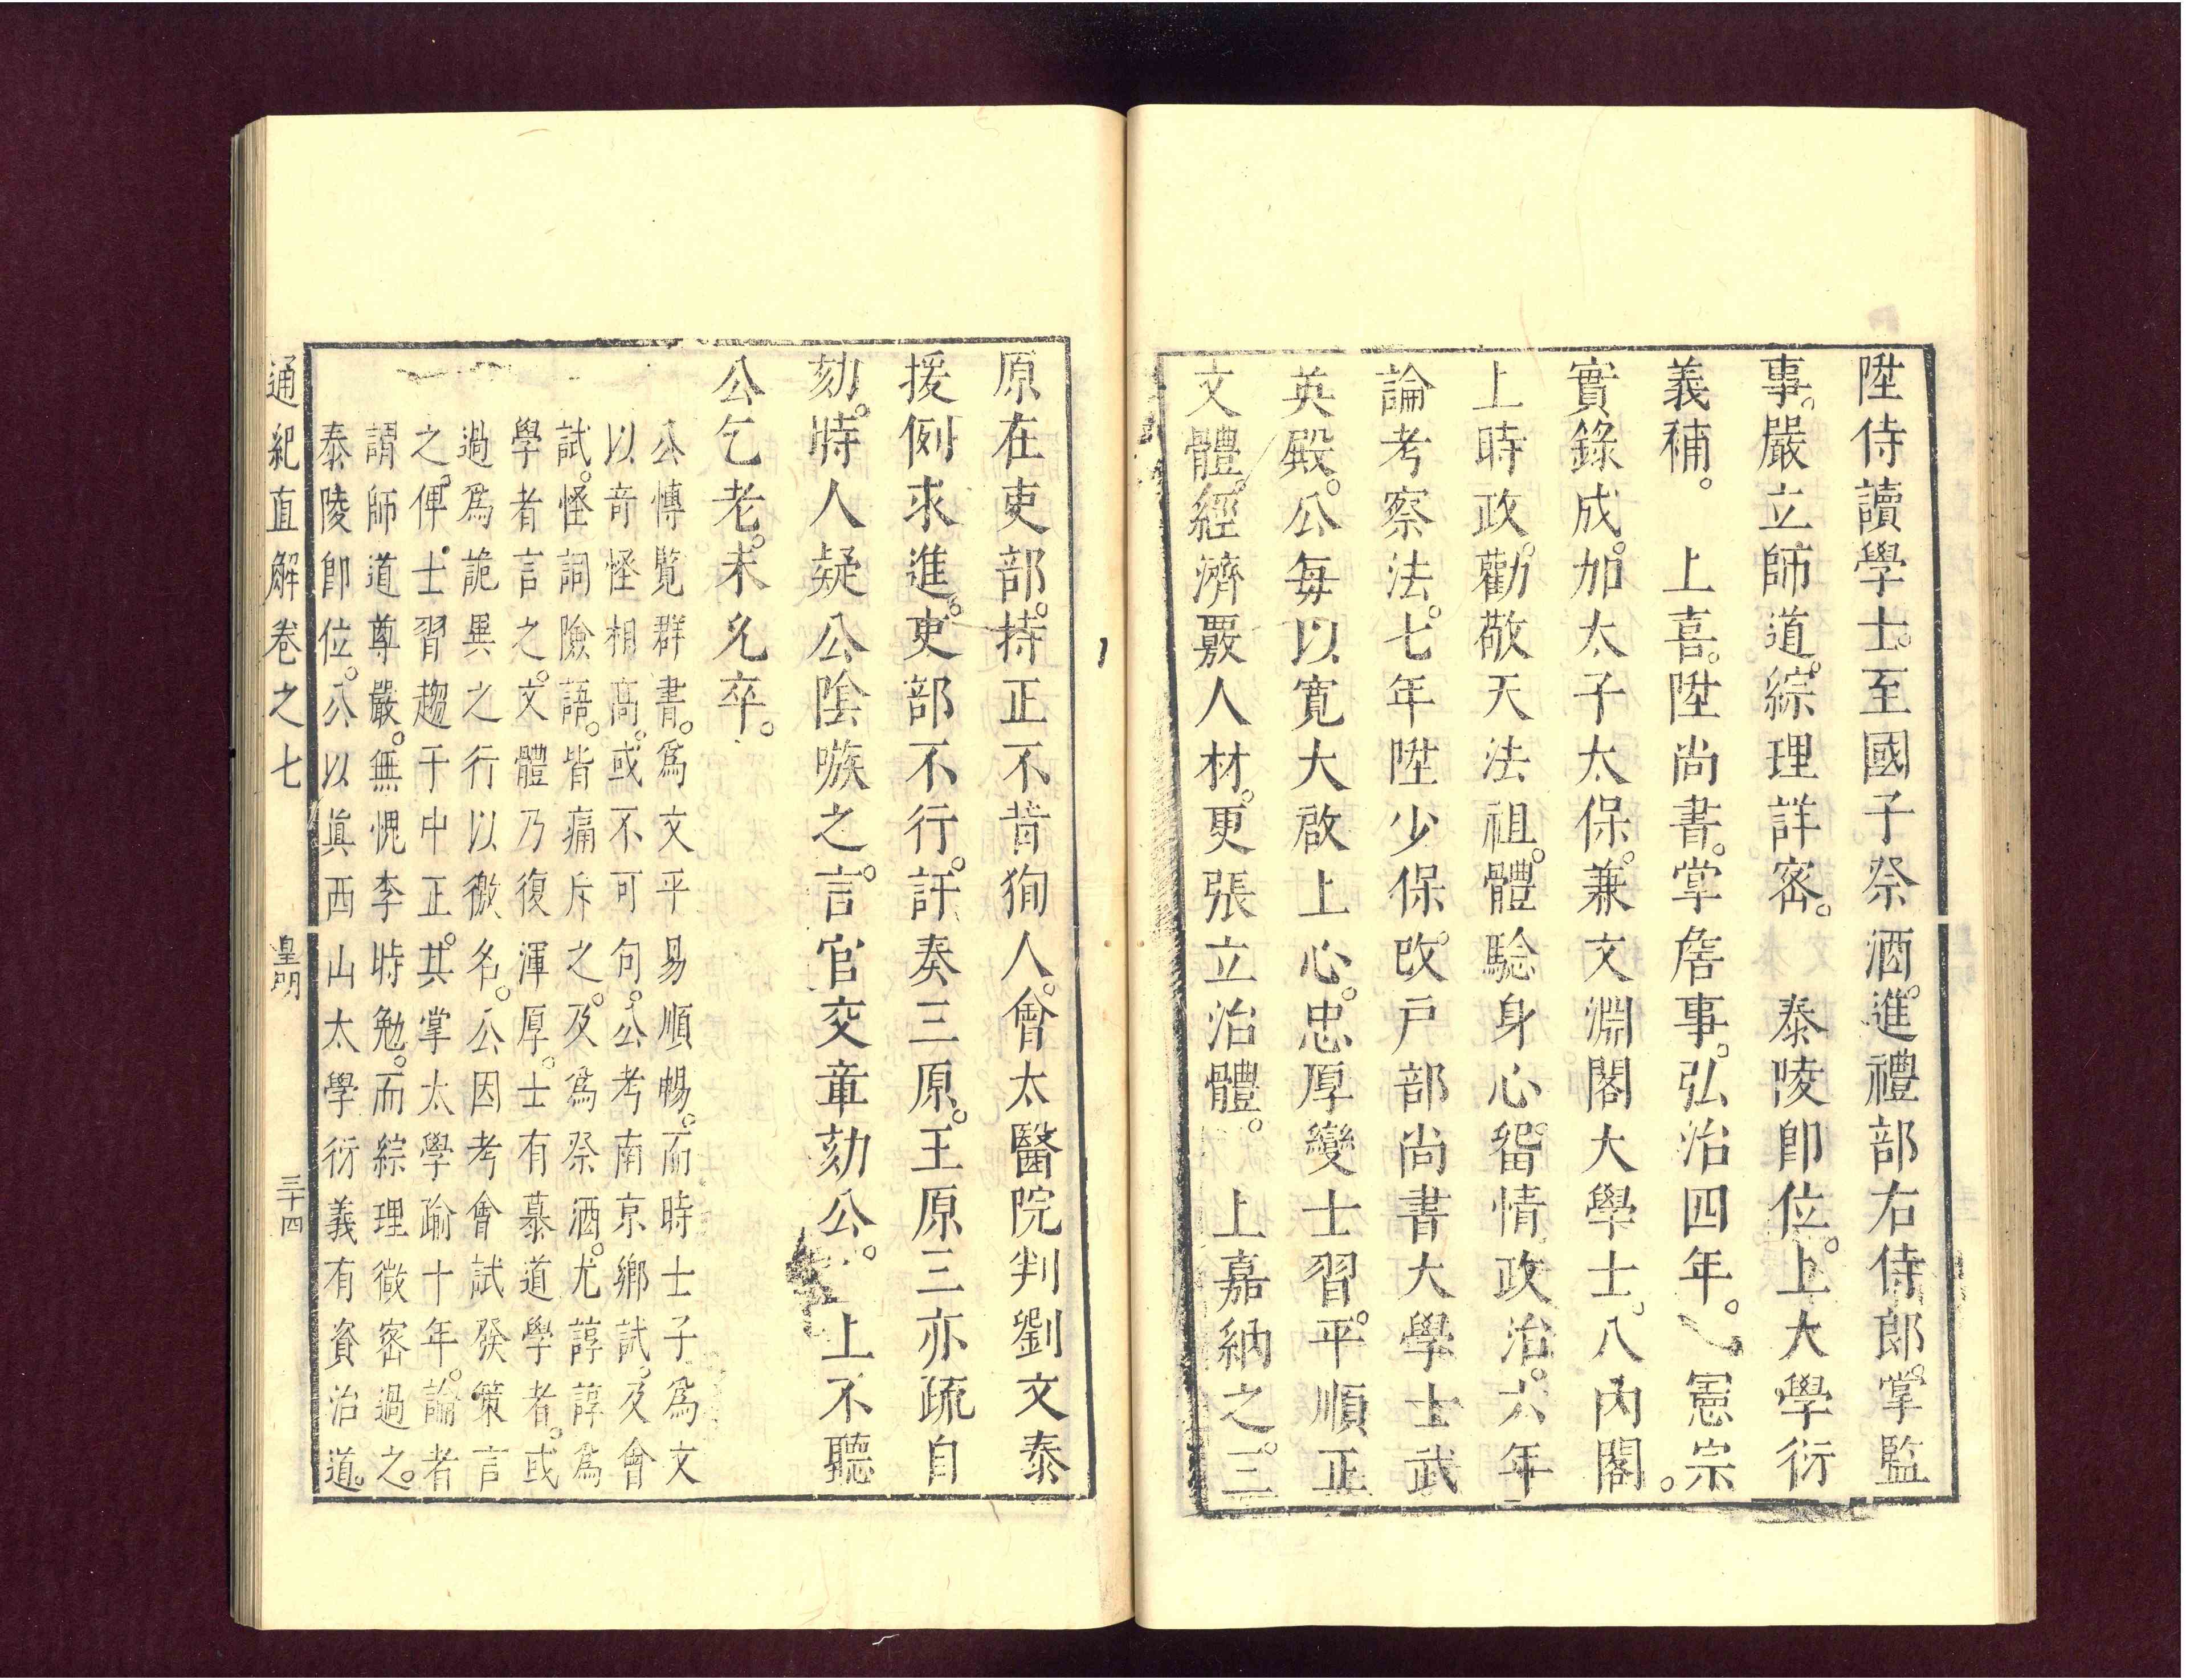 陞侍讀學士。至國子祭酒。進禮部右侍郎。掌監
事。嚴立師道。綜理詳密。　泰陵卽位。上大學衍
義補。　上喜。陞尚書。掌詹事。弘治四年。　憲宗
實錄成。加太子太保。兼文淵閣大學士。入內閣。
上時政。勸敬天法祖。體驗身心。畱情政治。六年
論考察法。七年陞少保。改戶部尚書大學士武
英殿。公每以寬大啟上心。忠厚變士習。平順正
文體。經濟覈人材。更張立治體。　上嘉納之。三
原在吏部。持正不苛狥人。會太醫院判劉文泰
援例求進。吏部不行。訐奏三原。王原三亦疏自
劾。時人疑公陰嗾之。言官交章劾公。　上不聽
公乞老。未允卒。
公博覽群書。爲文平易順暢。而時士子爲文
以竒怪相高。或不可句。公考南京鄉試。及會
試。怪詞險語。皆痛斥之。及爲祭酒。尤諄諄爲
學者言之。文體乃復渾厚。士有慕道學者。或
過爲詭異之行以徼名。公因考會試發策言
之。俾士習趨于中正。其掌太學踰十年。論者
謂師道尊嚴。無愧李時勉。而綜理微密過之。
泰陵卽位。公以眞西山太學衍義有資治道。
通紀直解卷之七　皇明　三十四